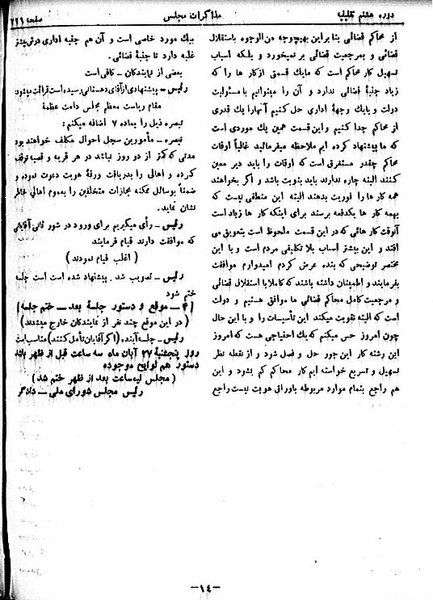 دوره هشتم تقنینیه
مذاکرات مجلس
صفحه ۷۲۱
از محاکم قضائی بنا براین بهیچوجه من الوجوه باستقلال
قضائی و بمرجعیت قضائی بر نمیخورد و بلکه اسباب
تسهیل کار محاکم است که مایک قسمت ازکار ها را که
زیاد جنبۀ قضائی ندارد و آن را میتوانیم با مسئولیت
دولت و بایک وجهۀ اداری حل کنیم آنهارا یک قدری
از محاکم جدا کنیم و این قسمت همین یک موردی است
که ما پیشنهاد کرده ایم ملاحظه میفرمائید غالباً اوقات
محاکم چقدر مستغرق است که اوقات را باید دیر معین
کنند البته چاره ندارند باید بنوبت باشد و اگر بخواهند
همه کار ها را فوریت بدهند البته این منطقی نیست که
بهمه کار ها یکدفعه برسند برای اینکه کار ها زیاد است
آنوقت کار هائی که در این قسمت ملحوظ است بتعویق می
افتد و این بیشتر اسباب بلا تکلیفی مردم است و با این
مختصر توضیحی که بنده عرض کردم امیدوارم موافقت
بفرمایند و اطمینان داشته باشند که کاملا با استقلال قضائی
و مرجعیت کامل محاکم قضائی ها موافق هستیم و دولت
است که البته تقویت میکند این تأسیسات را و با این حال
چون امروز حس میکنم که یک احتیاجی هست که امروز
این رشته کار این جور حل و فصل شود و از نقطه نظر
تسهیل و تسریع خواسته ایم کار محاکم کم بشود و این
هم راجع بتمام موارد مربوطه باوراق هویت نیست راجع
بیک مورد خاصی است و آن هم جنبه اداری دروش بیشتر
غلبه دارد تا جنبۀ قضائی.
بعضی از نمایندگان - کافی است
رئیس - پیشنهادی از آقای دهستانی رسیده است قرائت میشود
مقام ریاست معظم مجلس دامت عظمة
تبصره ذیل را بماده ۷ اضافه میکنم:
تبصره - مأمورین سجل احوال مکلف خواهند بود
مدتی که کمتر از دو روز نباشد در هر قریه و قصبه توقف
کرده و اهالی را بدریافت ورقۀ هویت دعوت نموده و
ضمناً بوسائل ممکنه مجازات متخلفین را بعموم اهالی خاطر
نشان نماید.
رئیس - رأی میگیریم برای ورود در شور ثانی آقایانی
که موافقت دارند قیام فرمایند
( اغلب قیام نمودند )
رئیس - تصویب شد. پیشنهاد شده است است جلسه
ختم شود
[ ۴ - موقع و دستور جلسۀ بعد - ختم جلسه ]
( در این موقع چند نفر از نمایندگان خارج میشدند )
رئیس - جلسه آینده (اگر آقایان تأمل کنند) مناسب است
روز پنجشنبۀ ۲۷ آبان ماه سه ساعت قبل از ظهر باشد
دستور هم لوایح موجوده
( مجلس نیمساعت بعد از ظهر ختم شد )
رئیس مجلس شورای ملی - دادگر
-۱٤-